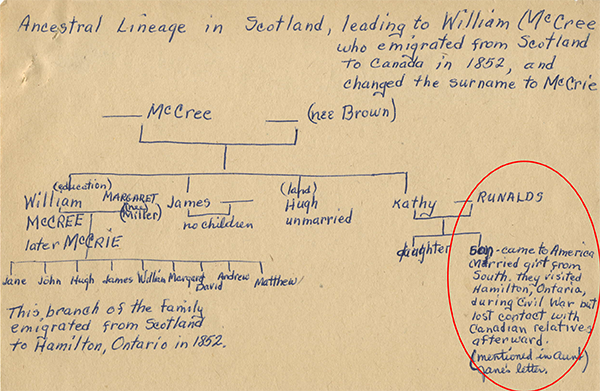 Ancestral Lineage in Scotland, leading to William (McCree
who emigrated from Scotland
to Canada in 1852, and
changed the surname to McCrie
McCree
(nee Brown)
(education)
William
McCREE
later McCRIE
MARGARET
(nee)
(Miller)
James
no children
(land)
Hugh
unmarried
Kathy
RUNALDS
daughter
son - came to America
married girl from
South. they visited
Hamilton, Ontario,
during Civil War but
lost contact with
Canadian relatives
afterward.
(mentioned in Aunt
Jane's letter.
Jane John Hugh James William Margaret David Andrew Matthew
This branch of the family
emigrated from Scotland
to Hamilton, Ontario in 1852.